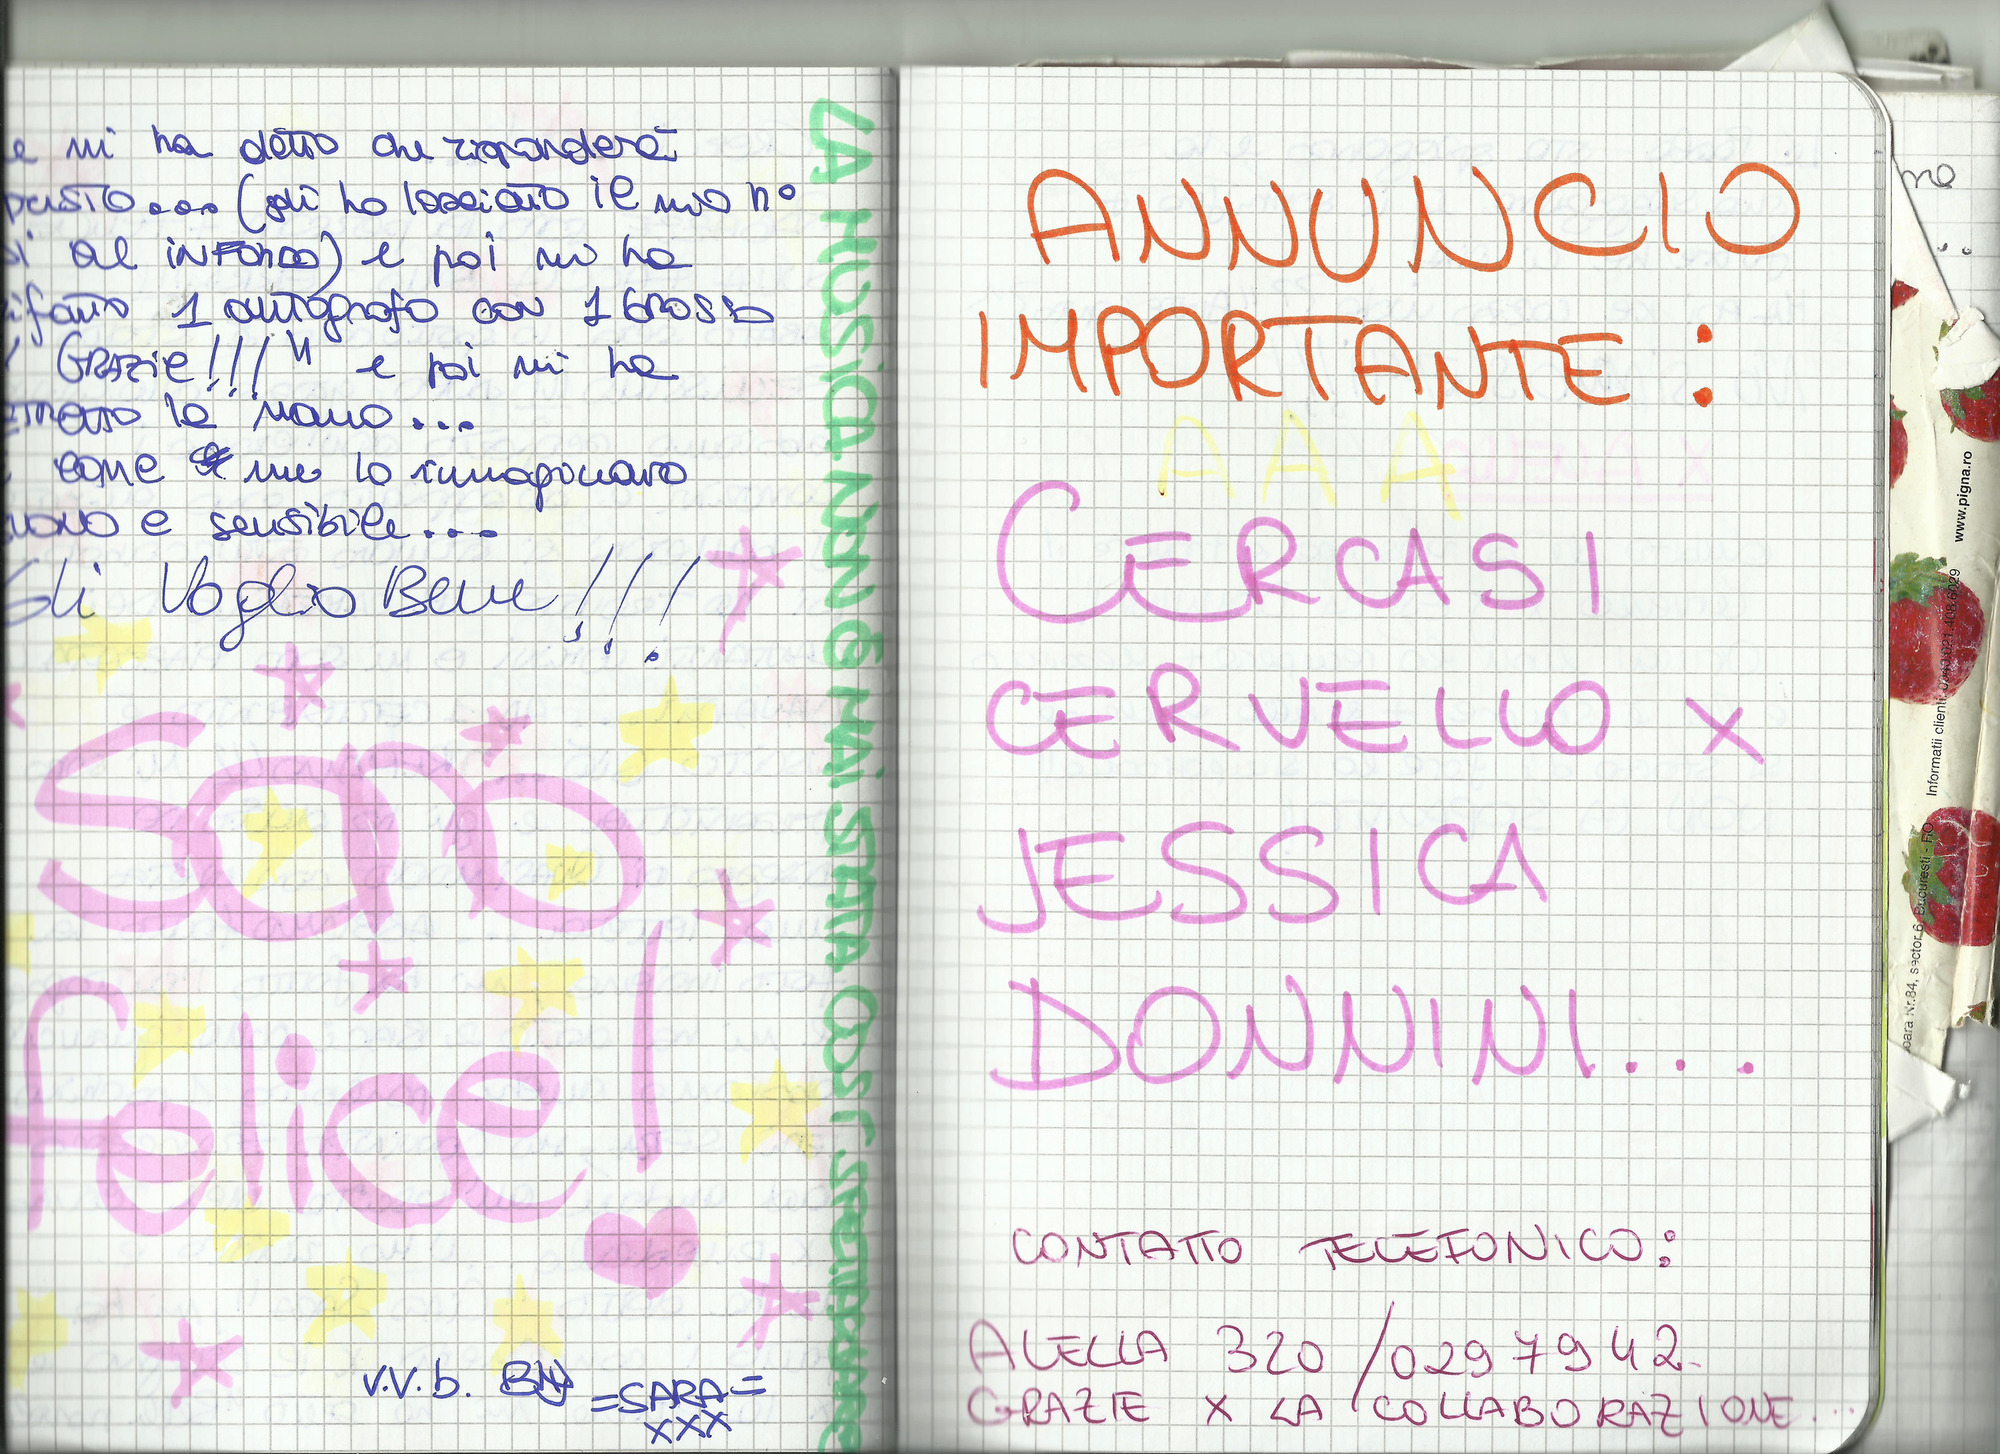 e mi ha detto che risponderà
presto... (gli ho lasciato il mio n°
di cel in fondo) e poi mi ha
rifatto 1 autografo con 1 GROSSO
GRAZIE!!!" e poi mi ha
stretto la mano...
come me lo immaginavo
buono e sensibile...
Gli Voglio Bene!!!
Sono
felice!
v.v.b.
=SARA=
XXX
LA MUSICA NON È MAI STATA COSÌ
ANNUNCIO
IMPORTANTE:
A A A
CERCASI
CERVELLO X
JESSICA
DONNINI....
CONTATTO TELEFONICO:
ALELLA 320/0297942.
GRAZIE X LA COLLABORAZIONE...
no
www.pigna.ro
Informatii clienti:
oara Nr.84, sector 6, Bucuresti - RO